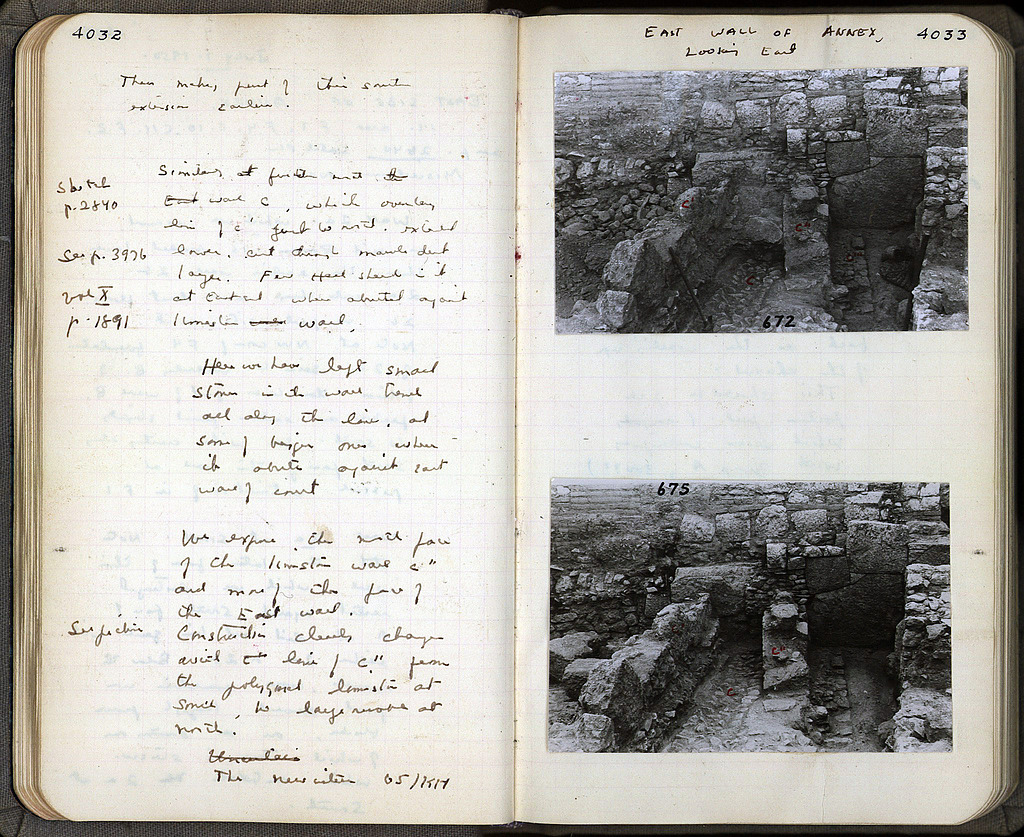 4032
Then makes part of this south
extension earlier.
Sketch
p. 2840
See p. 3976
vol X
p. 1891
Similarly at further north the
East wall C, which overlay
line of C" just to north.
lower, cut through marble dust
layer. Few Hell sherds in it
at East end where abutted against
limestone wall.
Here we have left small
stones in the wall trench
all along the line, and
some of bigger ones where
it abuts against east
wall of court
We expose the north face
of the limestone wall C"
and more of the face of
the East wall.
See picture
Construction clearly changes
at line of C" from
the polygonal limestone at
South, to large at
north.
The
4033
EAST WALL OF ANNEX,
Looking East
C
C
C
672
675
C
C
C